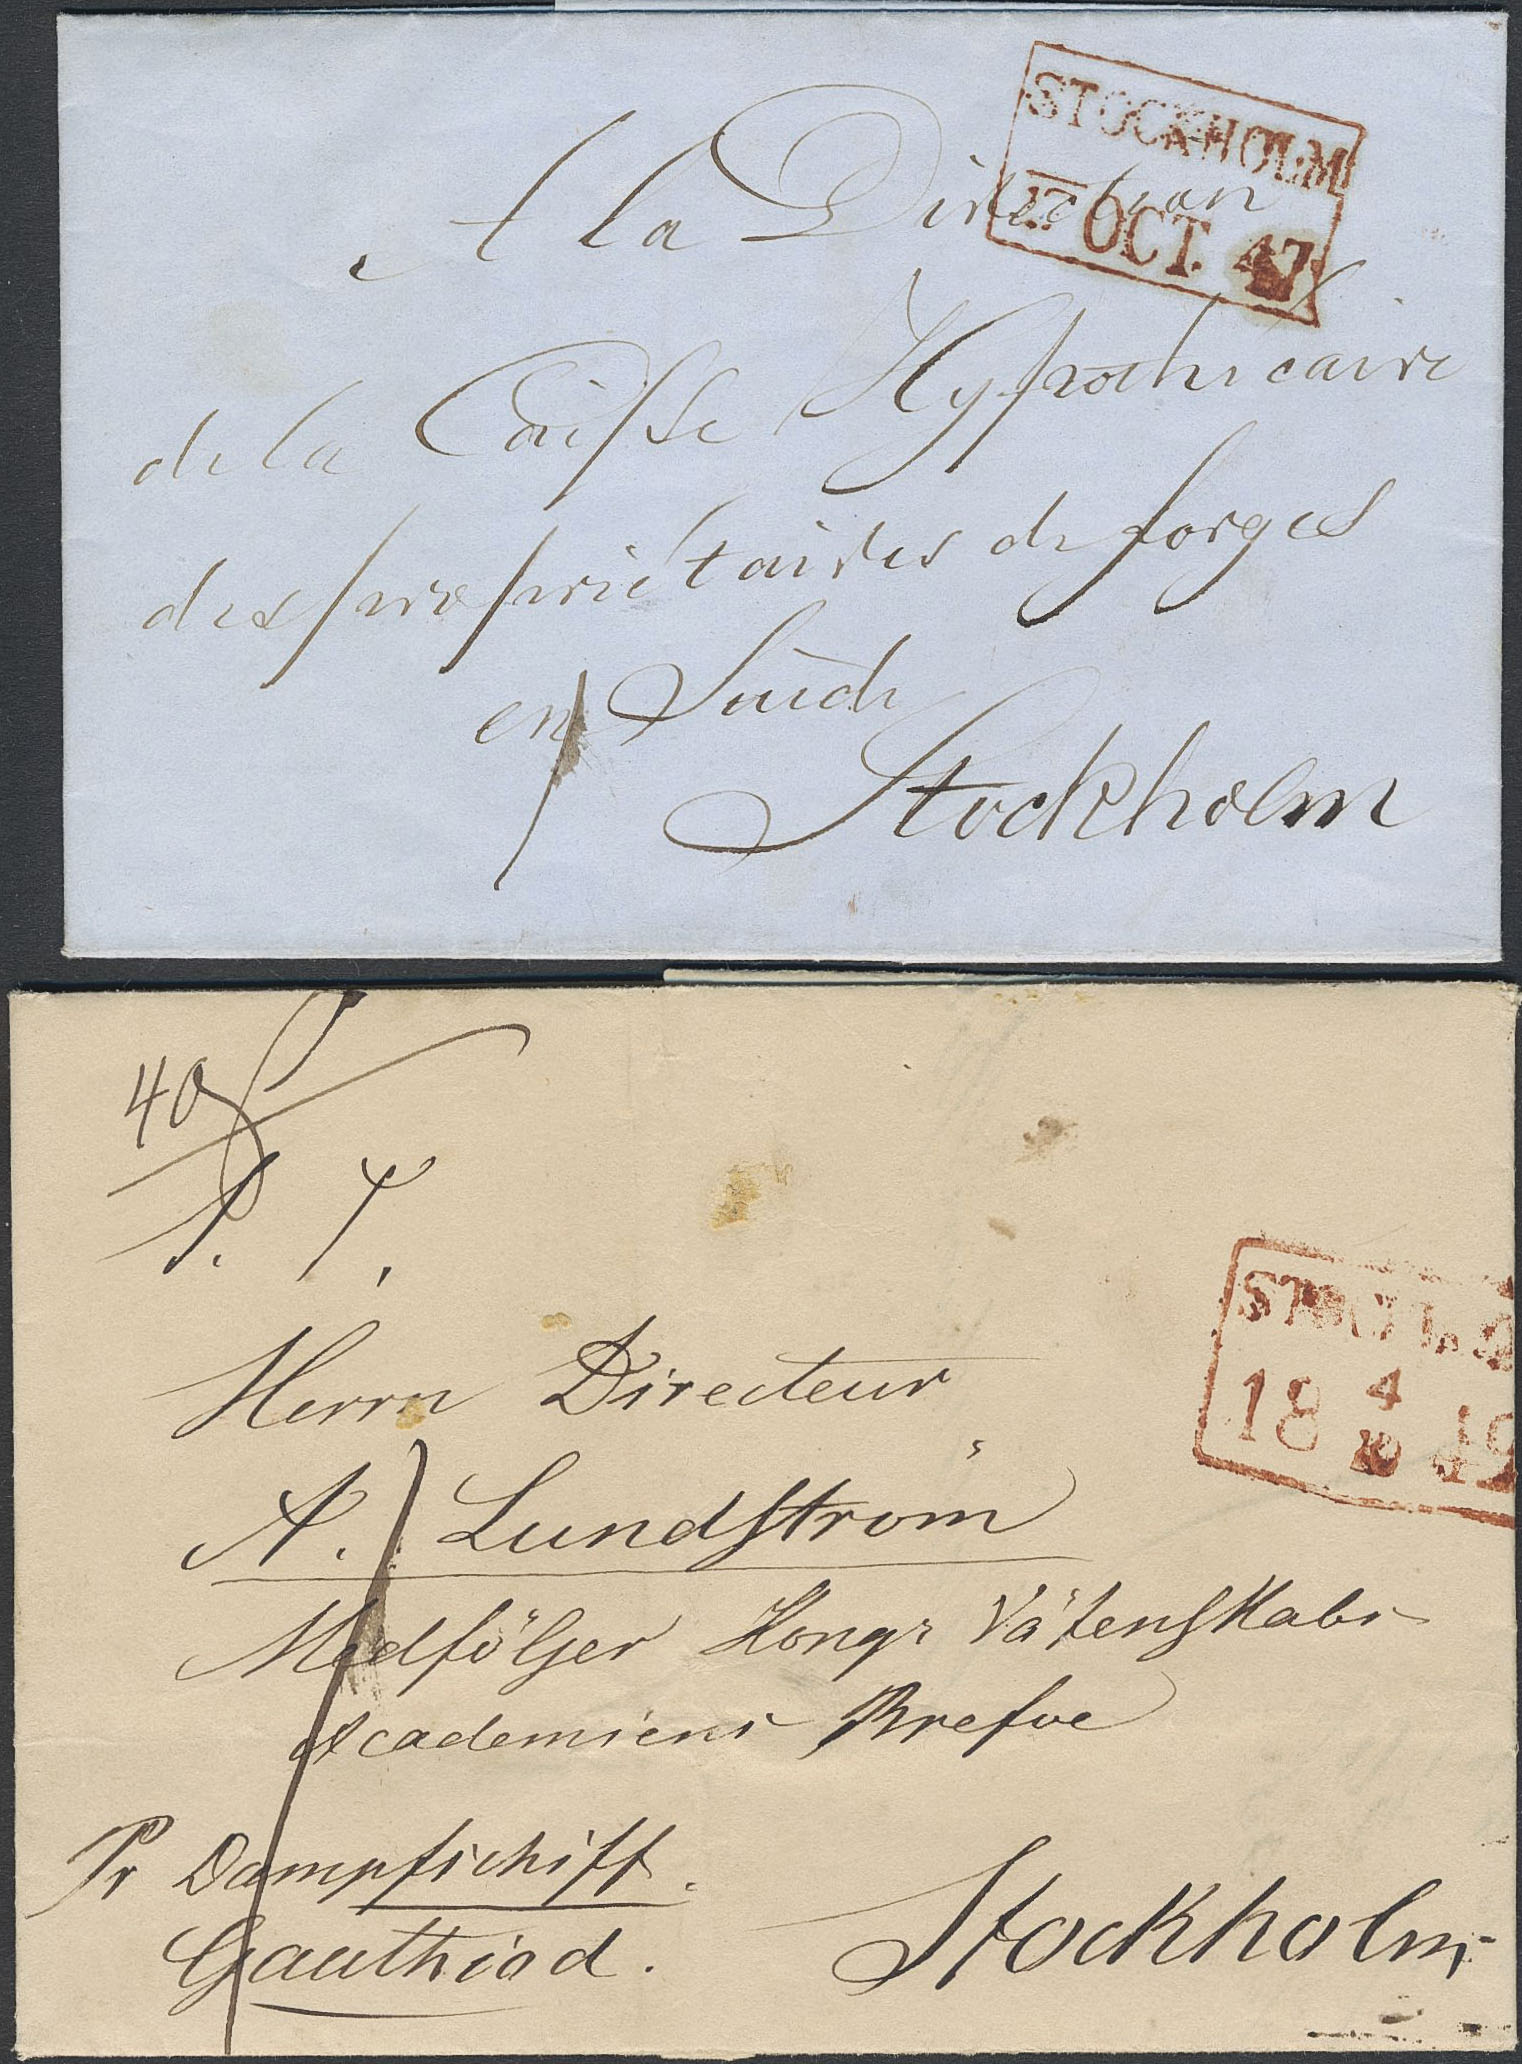 STOCKHOLM
17 OCT. 47
A la Direction
de la Caisse Hypothécaire
des propriétaires de forges
en Suède
Stockholm
40
P. T.
STOCKHO
18 4/10 49
Herrn Directeur
A. Lundström
Medföljer Kongr Vätenskabs
Academiens Brefve
Pr Dampfschiff.
Gauthiod.
Stockholm